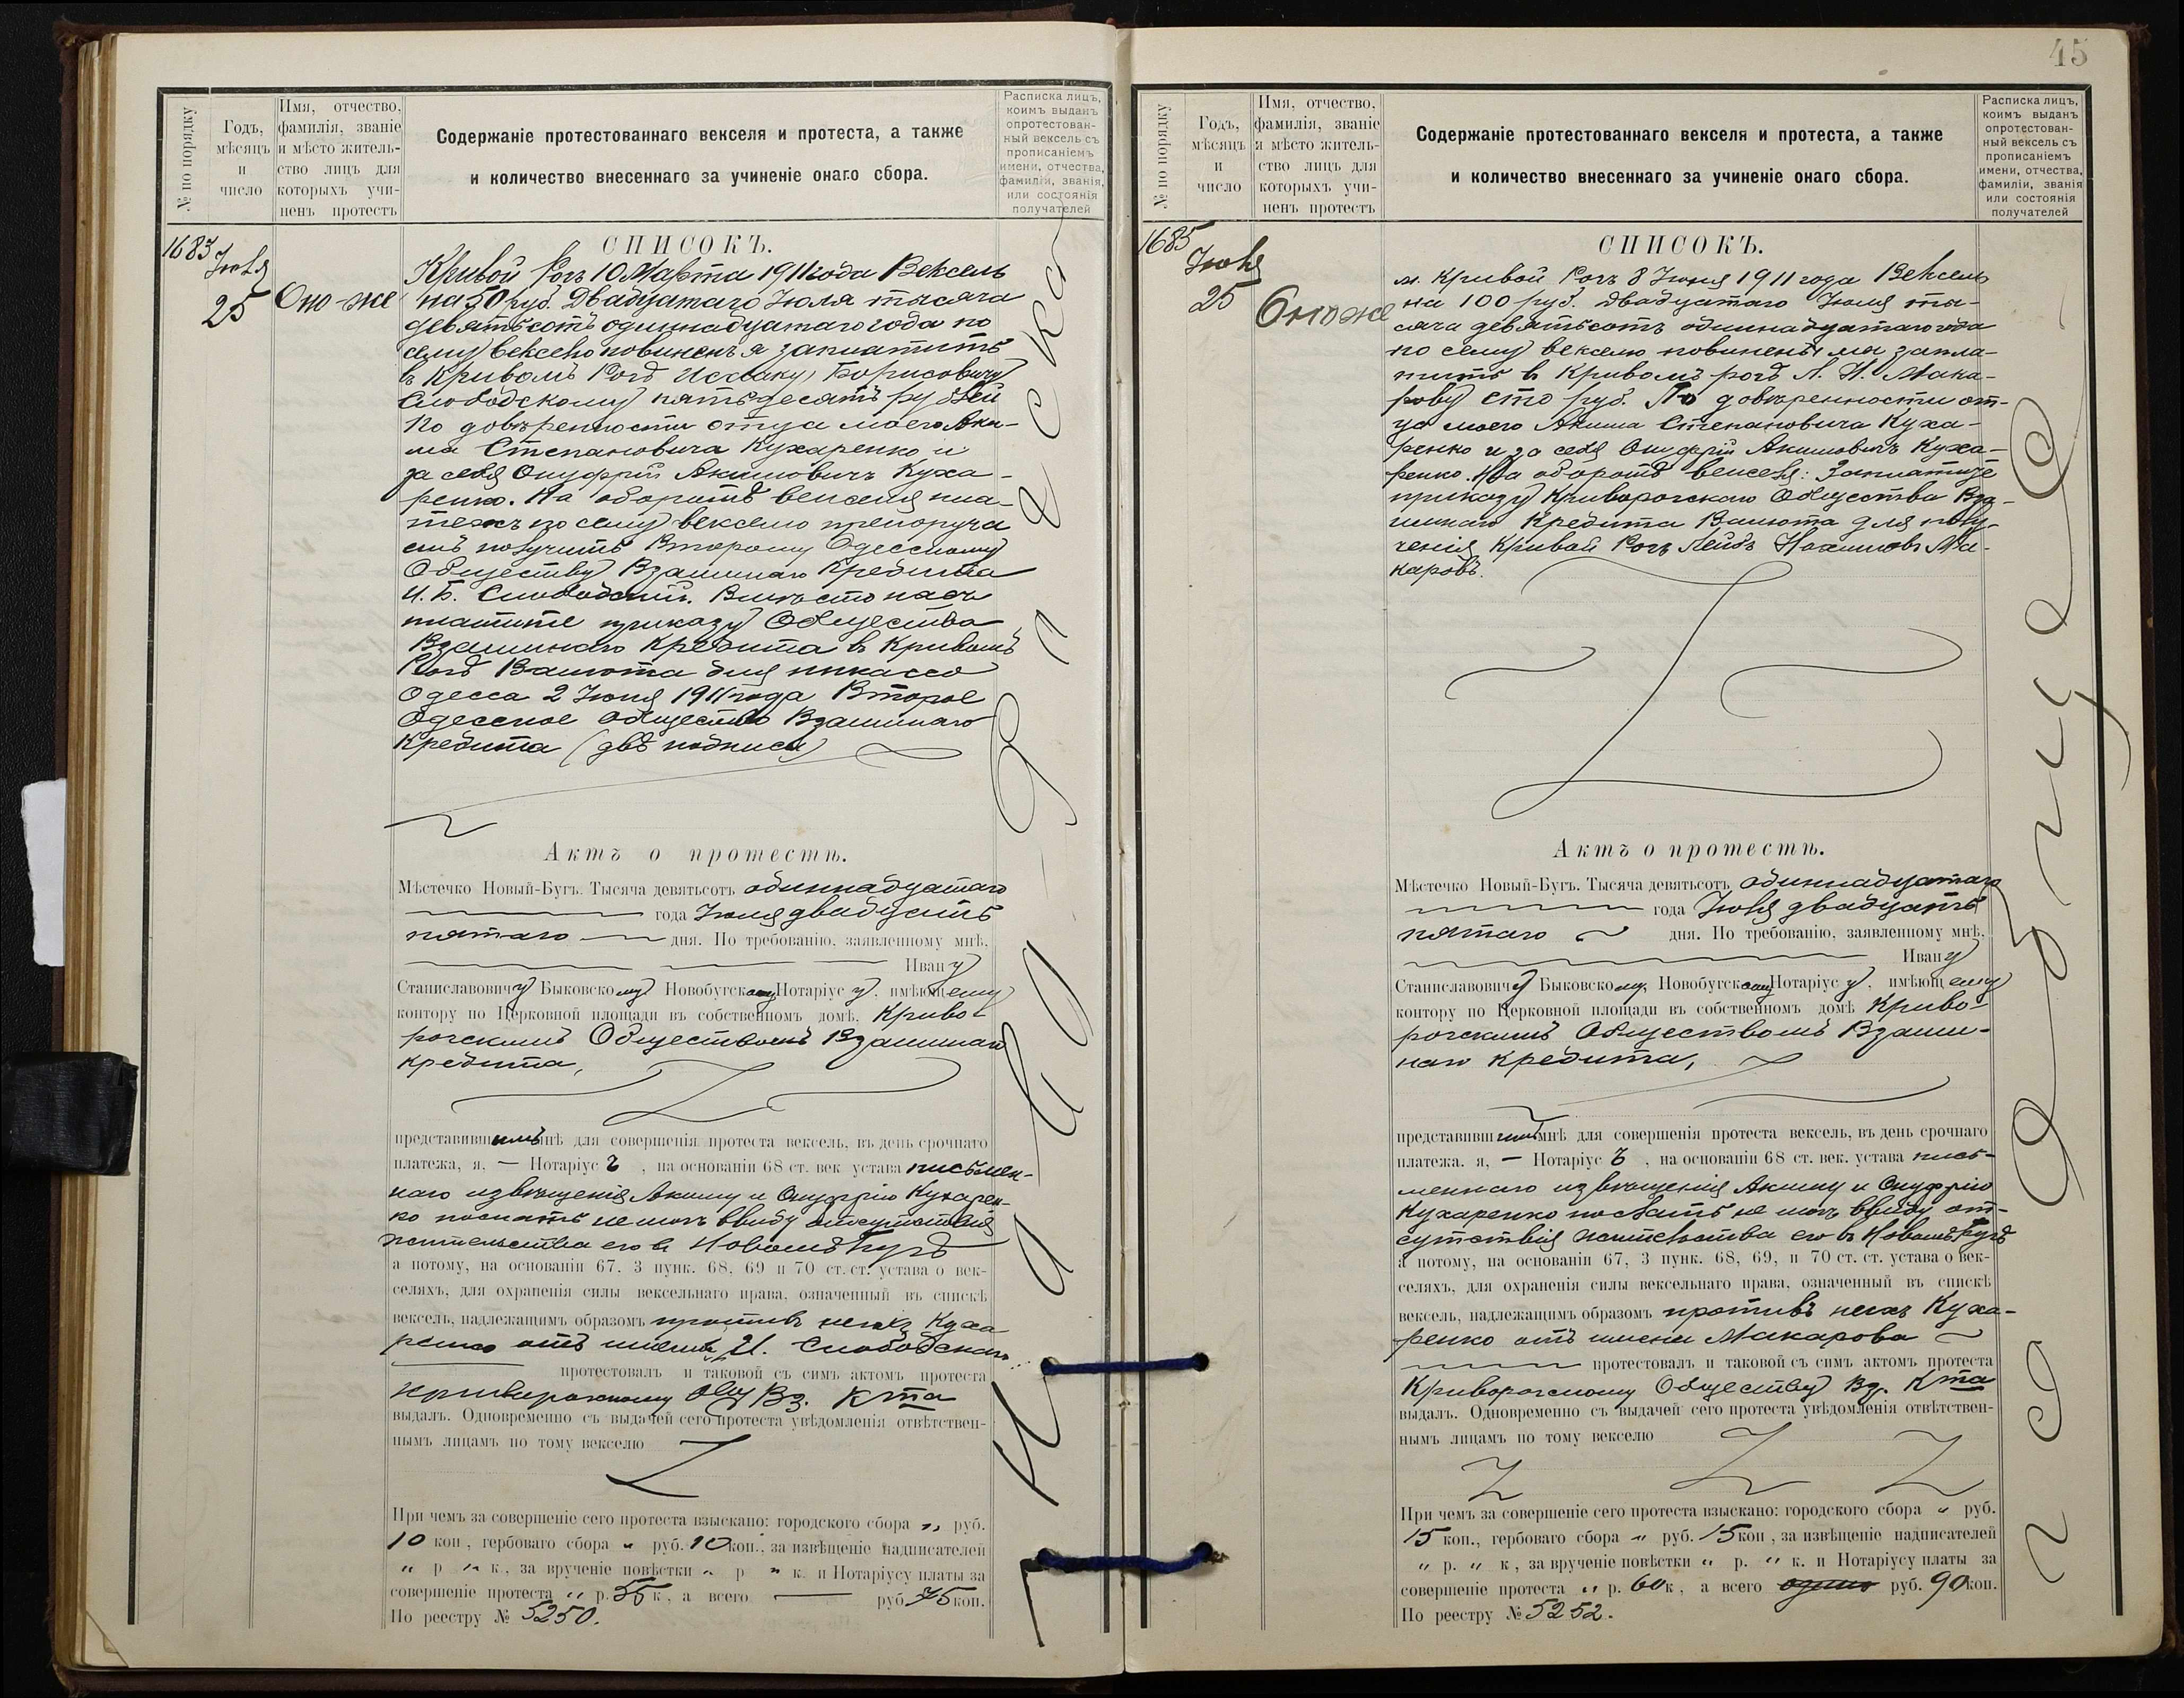 № по порядку
Годъ,
мѣсяцъ
и
число
Имя, отчество,
фамилія, званіе
и мѣсто житель-
ство лицъ для
которыхъ учи-
ненъ протестъ
Содержаніе протестованнаго векселя и протеста, а также
и количество внесеннаго за учиненіе онаго сбора.
Расписка лицъ,
коимъ выданъ
опротестован-
ный вексель съ
прописаніемъ
имени, отчества,
фамиліи, званія,
или состоянія
получателей
1683
Іюля
25
Оно-же
СПИСОКЪ.
Кривой Рогъ 10 Марта 1911 года Вексель
на 50 руб. Двадцатаго Іюля тысяча
девятьсотъ одиннадцатаго года по
сему векселю повиненъ я заплатить
въ Кривомъ Рогѣ Исааку Борисовичу
Слободскому пятьдесятъ рублей
По довѣренности отца моего Аки-
ма Степановича Кухаренко и
за себя Онуфрій Акимовичъ Куха-
ренко. На оборотѣ векселя пла-
тежъ по сему векселю препоруча
емъ получить Второму Одесскому
Обществу Взаимнаго Кредита
И. Б. Слободской. Вмѣсто насъ
платите приказу Общества
Взаимнаго Кредита въ Кривомъ
Рогѣ Валюта для инкассо
Одесса 2 Іюня 1911 года Второе
Одесское Общество Взаимнаго
Кредита (двѣ подписи)
Актъ о протестѣ.
Мѣстечко Новый-Бугъ. Тысяча девятьсотъ одиннадцатаго
года Іюля двадцать
пятаго дня. По требованію, заявленному мнѣ,
Ивану
Станиславовичу Быковскому Новобугскому Нотаріусу, имѣющему
контору по Церковной площади въ собственномъ домѣ, Криво-
рогскимъ Обществомъ Взаимнаго
кредита,
представившимъ мнѣ для совершенія протеста вексель, въ день срочнаго
платежа, я, — Нотаріусъ, на основаніи 68 ст. век устава письмен-
наго извѣщенія Акиму и Онуфрію Кухарен-
ко послать не могъ ввиду отсутствія
жительства его въ Новомъ Бугѣ
а потому, на основаніи 67. 3 пунк. 68, 69 и 70 ст. ст. устава о век-
селяхъ, для охраненія силы вексельнаго права, означенный въ спискѣ
вексель, надлежащимъ образомъ противъ нихъ Куха
ренко отъ имени И. Слободскаго
протестовалъ и таковой съ симъ актомъ протеста
Криворогскому Общ Вз. Кта
выдалъ. Одновременно съ выдачей сего протеста увѣдомленія отвѣтствен-
нымъ лицамъ по тому векселю
При чемъ за совершеніе сего протеста взыскано: городского сбора „ руб.
10 коп, гербоваго сбора „ руб. 10 коп., за извѣщеніе надписателей
„ р „ к, за врученіе повѣстки „ р „ к. и Нотаріусу платы за
совершеніе протеста „ р. 55 к, а всего — руб 75 коп.
По реестру № 5250.
45
№ по порядку
Годъ,
мѣсяцъ
и
число
Имя, отчество,
фамилія, званіе
и мѣсто житель-
ство лицъ для
которыхъ учи-
ненъ протестъ
Содержаніе протестованнаго векселя и протеста, а также
и количество внесеннаго за учиненіе онаго сбора.
Расписка лицъ,
коимъ выданъ
опротестован-
ный вексель съ
прописаніемъ
имени, отчества,
фамиліи, званія
или состоянія
получателей
1685
Іюля
25
Оно же
СПИСОКЪ.
м. Кривой Рогъ 8 Іюня 1911 года Вексель
на 100 руб. двадцатаго Іюля ты-
сяча девятьсотъ одиннадцатаго года
по сему векселю повинены мы запла-
тить въ Кривомъ рогѣ Л. Н. Мака-
рову сто руб. По довѣренности от-
ца моего Акима Степановича Куха-
ренко и за себя Онуфрій Акимовичъ Куха-
ренко. На оборотѣ векселя: Заплатите
приказу Криворогскаго Общества Вза-
имнаго Кредита Валюта для полу-
ченія Кривой Рогъ Лейбъ Нахимовъ Ма-
каровъ.
Актъ о протестѣ.
Мѣстечко Новый-Бугъ. Тысяча девятьсотъ одиннадцатаго
года Іюля двадцать
пятаго дня. По требованію, заявленному мнѣ,
Ивану
Станиславовичу Быковскому, Новобугскому Нотаріусу, имѣющему
контору по Церковной площади въ собственномъ домѣ Криво-
рогскимъ Обществомъ Взаим-
наго кредита,
представившимъ мнѣ для совершенія протеста вексель, въ день срочнаго
платежа. я, — Нотаріусъ, на основаніи 68 ст. век. устава пись-
меннаго извѣщенія Акиму и Онуфрію
Кухаренко послать не могъ ввиду от-
сутствія жительства его въ Новомъ Бугѣ
а потому, на основаніи 67, 3 пунк. 68, 69, и 70 ст. ст. устава о век-
селяхъ, для охраненія силы вексельнаго права, означенный въ спискѣ
вексель, надлежащимъ образомъ противъ нихъ Куха-
ренко отъ имени Макарова
протестовалъ и таковой съ симъ актомъ протеста
Криворогскому Обществу Вз. Кта
выдалъ. Одновременно съ выдачей сего протеста увѣдомленія отвѣтствен-
нымъ лицамъ по тому векселю
При чемъ за совершеніе сего протеста взыскано: городского сбора „ руб.
15 коп., гербоваго сбора „ руб. 15 коп, за извѣщеніе надписателей
„ р. „ к, за врученіе повѣстки „ р. „ к. и Нотаріусу платы за
совершеніе протеста „ р. 60 к, а всего одинъ руб. 90 коп.
По реестру № 5252.